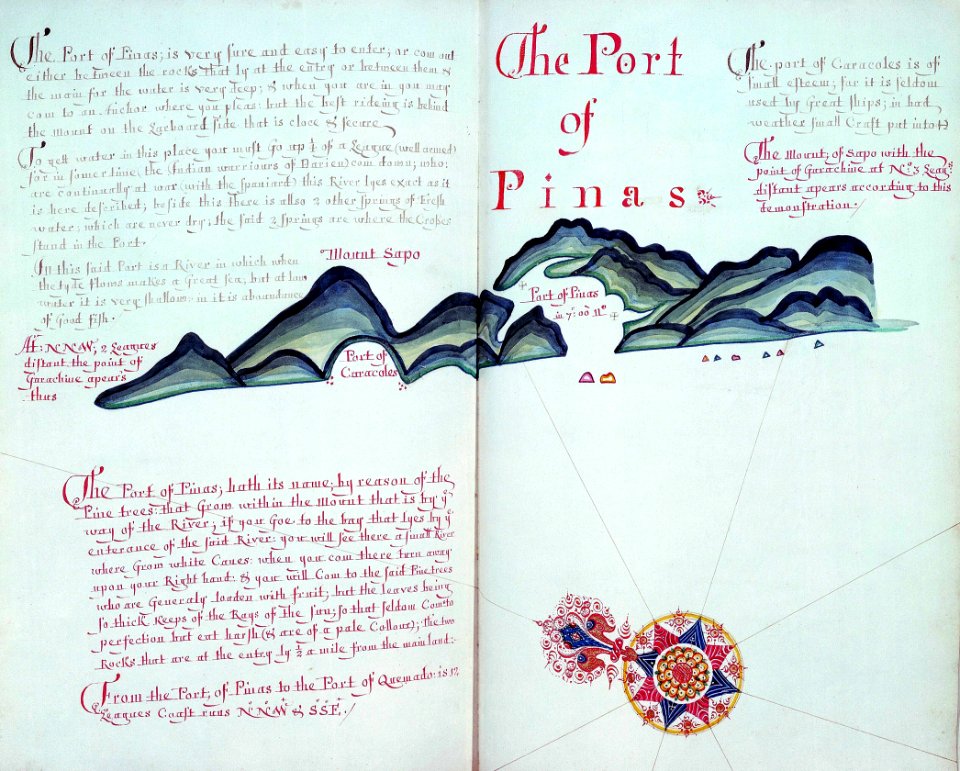 The Port of Pinas; is very sure and easy to enter; or com out
either between the rocks that ly at the entry or between them &
the main for the water is very deep; & when you are in you may
com to an Anchor where you pleas: but the best rideing is behind
the mount on the Larboard side that is close & secure
To gett water in this place you must Go up ¼ of a League (well armed)
for in somer time, the (Indian warriours of Darien) com down; who;
are continually at war (with the spaniard) this River lyes exact as it
is here described; beside this There is allso 2 other springs of fresh
water; which are never dry; the said 2 springs are where the Crosses
stand in the Port.
In this said Port is a River in which when
the tyde flows makes a Great sea; but at low
water it is very shallow: in it is aboundance
of Good fish.
At: N.N.W; 2 Leagues
distant the point of
Garachine apears
thus
Mount Sapo
Port of
Caracoles
The Port
of
Pinas
The port of Caracoles is of
small esteem; for it is seldom
used by Great ships; in bad
weather small Craft put into it
The Mount; of Sapo with the
point of Garachine at N.º 3 Leags
distant apears according to this
demonstration:
Port of Pinas
The Port of Pinas; hath its name; by reason of the
Pine trees: that Grow within the Mount that is by ye
way of the River; if you Goe to the bay that lyes by ye
enterance of the said River: you will see there a small River
where Grow white Canes: when you com there turn away
upon your Right hand: & you will Com to the said Pine trees
who are Generaly loaden with fruit; but the leaves being
so thick keeps of the Rays of the sun; so that seldom Com to
perfection but eat harsh (& are of a pale Collour); the two
Rocks that are at the entry ly ½ a mile from the main land:
From the Port, of Pinas to the Port of Quemado: is 12
Leagues Coast runs N.N.W & S.S.E.